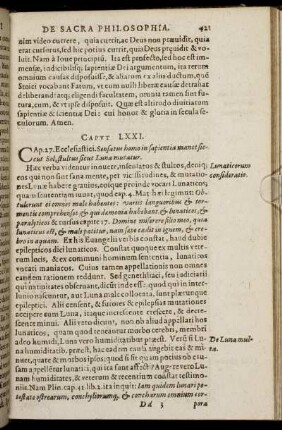 DE SACRA PHILOSOPHIA. 421
uim video currere, quia currit, at Deus non præuidit, quia
erat cursurus, sed hic potius currit, quia Deus præuidit & vo-
luit. Nam à Ioue principiũ. Ita est profectò, sed hoc est im-
mensæ, indicibilisq; sapientiæ Dei argumentum, ita rerum
omnium causas disposuisse, & aliarum ex aliis ductum, quẽ
Stoici vocabant Fatum, vt cum nulli liberũ esset
deliberandi atq; eligendi facultatem, omnia tamen sint futu-
ra, cum, & vt ipse disposuit. O quæ est altitudo diuitiarum
sapientiæ & scientiæ Dei: cui honor & gloria in secula se-
culorum. Amen.
CAPVT LXXI.
CAp. 27. Ecclesiastici. Sensatus homo in sapientia manet si-
cut Sol, stultus sicut Luna mutatur.
Hæc verba videntur innuere, insensatos & stultos, deniq;
eos qui non sint sana mente, per vicissitudines, & mutatio-
nes Lunæ habere gratines, eosque proinde vocari Lunaticos;
quia insaniunt iuxta quod cap. 4. Matth. sit legimus: Ob-
tulerunt ei omnes male habentes: variis languoribus & tor-
mentis comprehensos, & qui dæmonia habebant & lunaticos, &
paralyticos & curauit eos: & cap. 17. Domine miserere filio meo, quia
lunaticus est, & male patitur, nam sæpe cadit in ignem, & cre-
bro in aquam. Ex his Euangelii verbis constat, haud dubiè
epilepticos dici lunaticos. Constat quoque ex multis vete-
rum locis, & ex communi hominum sententia, lunaticos
vocari maniacos. Cuius tamen appellationis non omnes
eandem rationem reddunt. Sed genethliaci, seu iudiciarii
qui natiuitates obseruant, dicũt inde esse quod qui in inter-
lunio nascuntur, aut Luna malè collocata, sunt plærunque
epileptici. Alii censent, & furiores & epilepsias mutationes
accipere cum Luna, itaque increscente crescere, & decre-
scente minui. Alii verò dicunt, non ob aliud appellari hos
lunaticos, quam quod teneantur morbo cerebri, membri
adeo humidi, cui Luna verò humiditatibus præest. Verũ si Lu-
na humiditatib. præest, hac eadem ratione augebit eas & mi-
nuet, quare & morbos quoque: si sit quàm potius ob cau-
sam appellentur lunatici, qui ita sunt affecti? Auget verò
Lunam humiditates, & veterum & recentium constat testimo-
niis. Nam Plin. cap. 41. lib. 2. ita inquit: Iam quidem lunari po-
testate ostrearum, conchyliorumq;, & concharum omnium cor-
Dd 3 pora
Lunaticorum
consideratio.
De Luna mul-
ta.